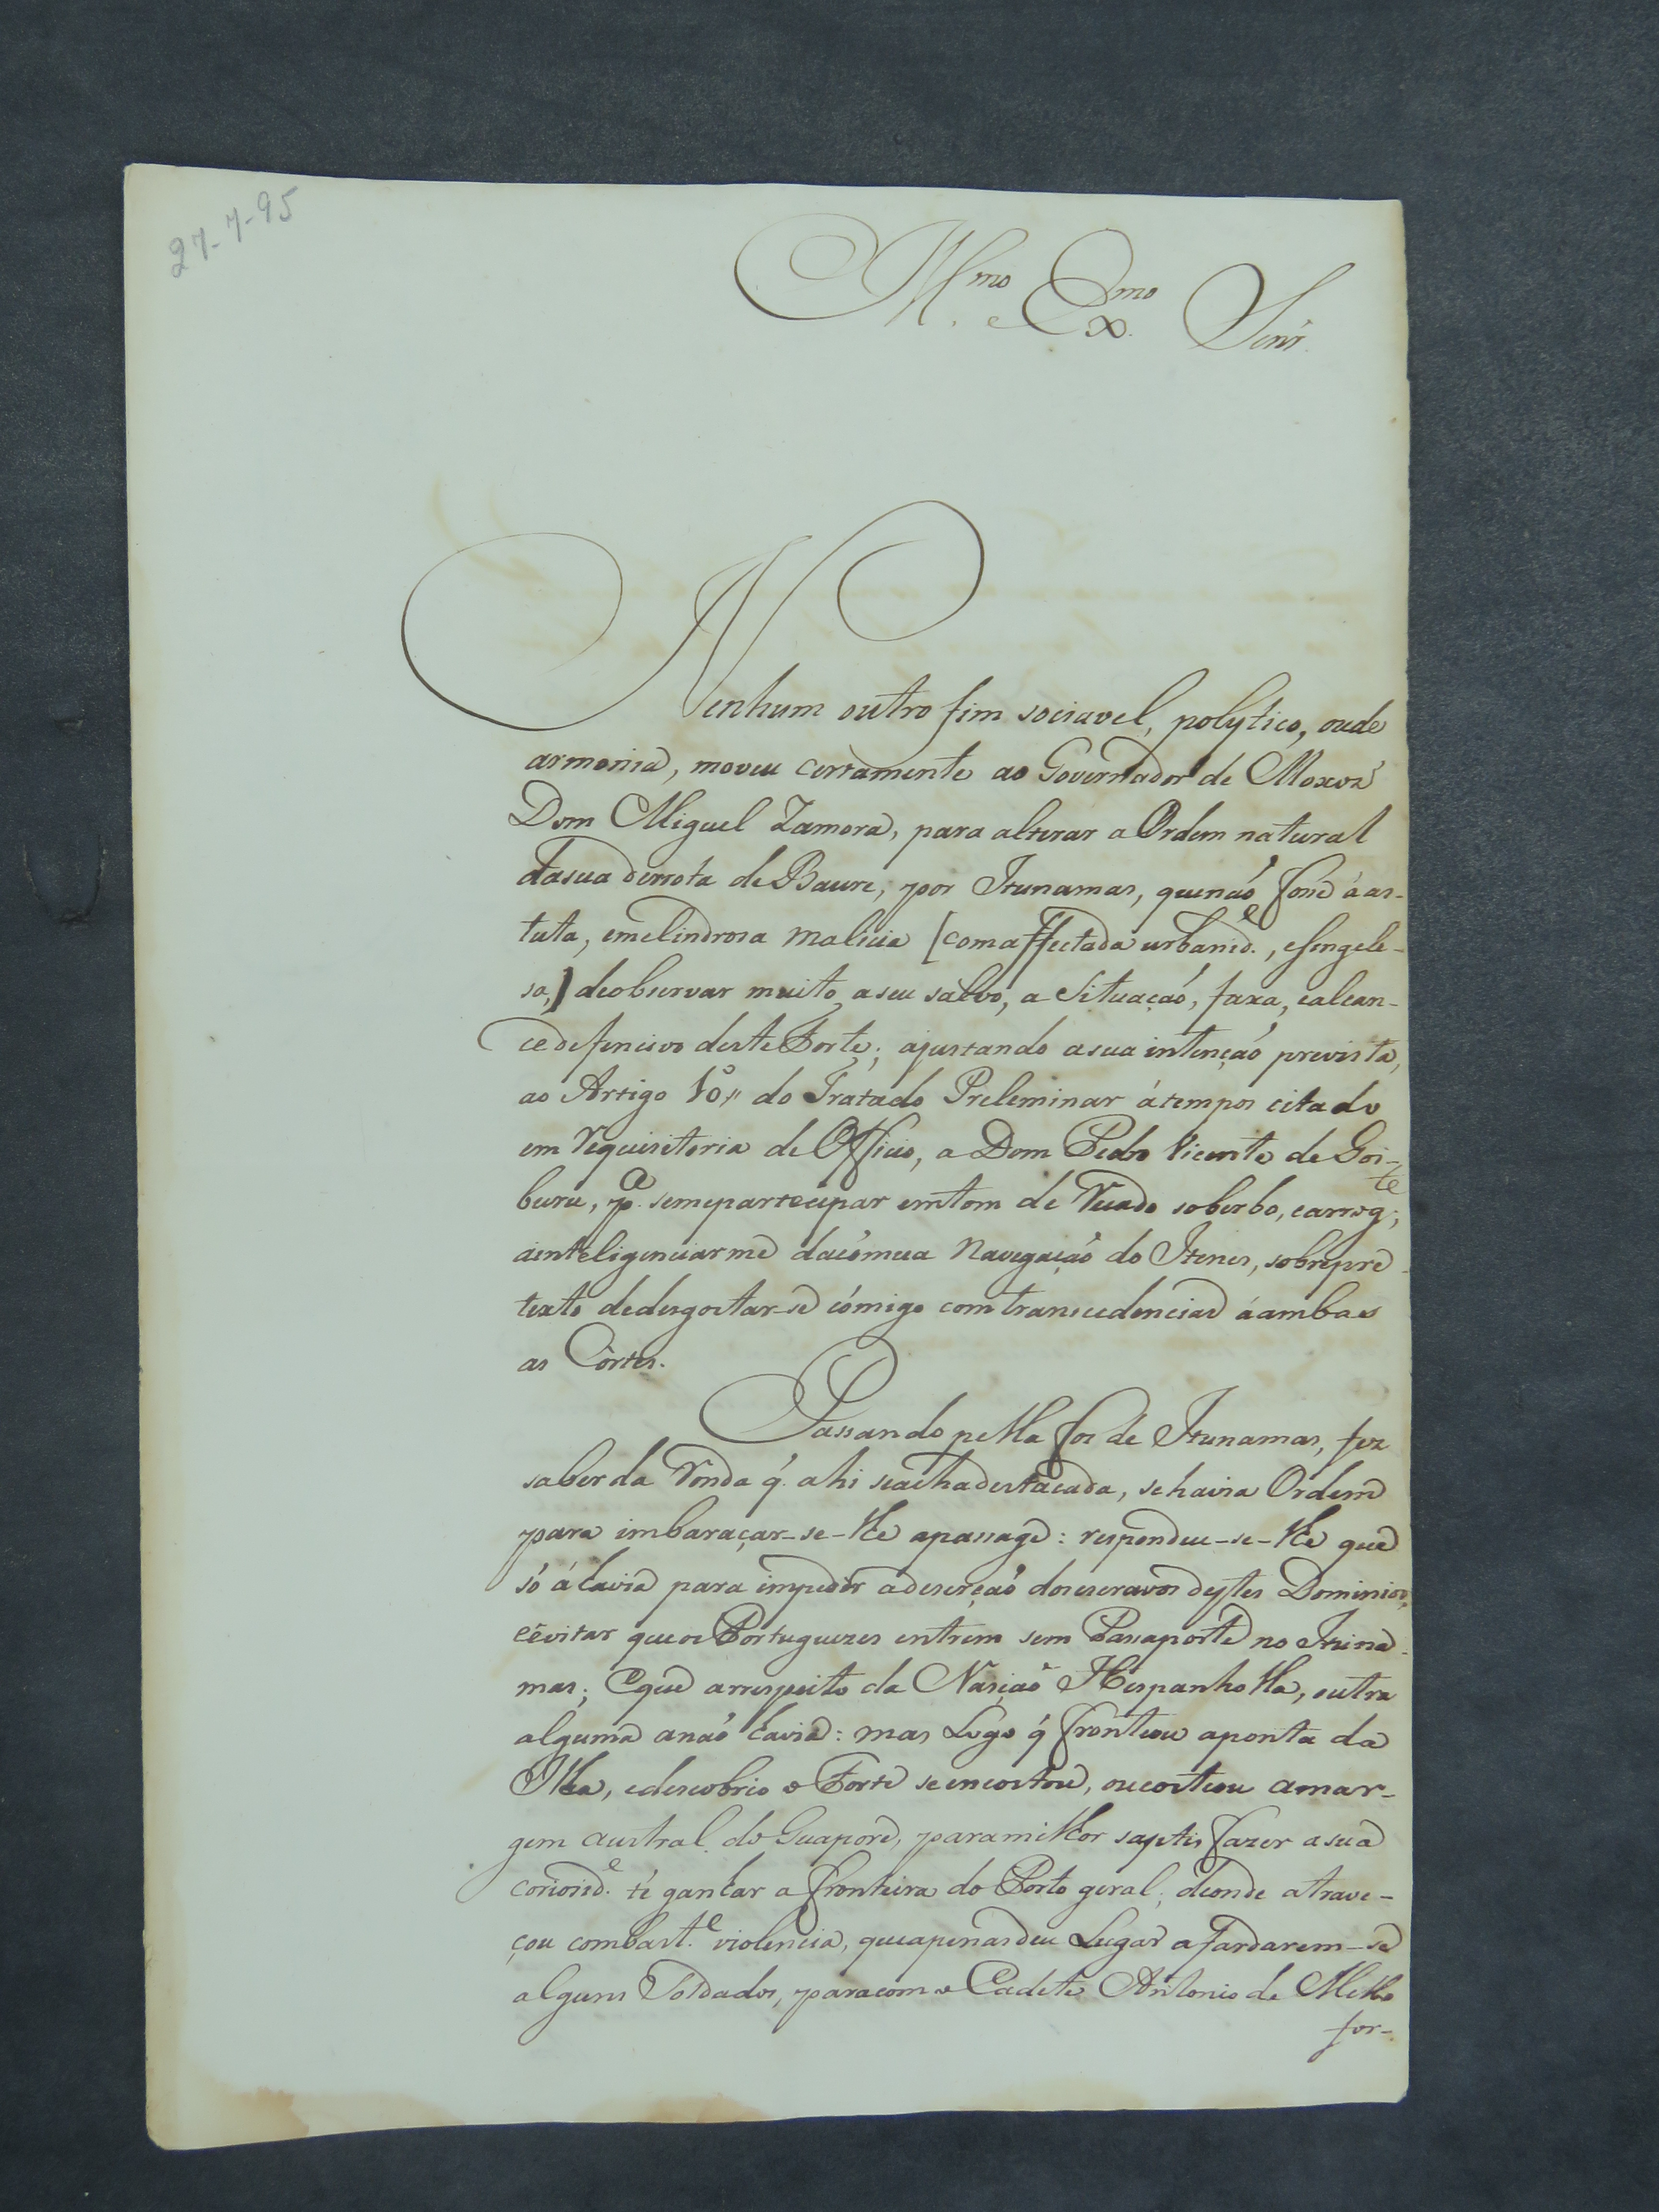 27-7-95
Ill.mo e Ex.mo Senr.
Nenhum outro fim sociavel, polytico, oude
armonia, moveu certamente ao Governador de Moxos
Dom Miguel Zamora, para alterar a Ordem natural
dasua derrota de Baure, por Itunamas, quenaõ fosse áas-
tuta, emelindrosa malicia [comaffectada urbanid.e, esingele-
sa,] deobservar muito aseu salvo, a Situaçaõ, faxa, ealcan-
cedefencivo deste Forte; ajustando asua intençaõ prevista,
ao Artigo 10,, do Tratado Preleminar átempos citado
em Requisitoria de Officio, a Dom Pedro Vicente de Goi-
buru, p.a semepartecipar emtom de Recado soberbo, earrog.te;
ainteligenciarme dacómua Navegaçaõ do Itenes, sobrepre-
texto dedesgostar-se cómigo com transcedencias áambas
as Córtes.
Passando pella fos de Itunamas, fez
saber da Ronda q̃. ahi seachadestacada, sehavia Ordem
para imbaraçar-se-lhe apassage: respondeu-se-lhe que
só áhavia para impedir adeserçaõ doseseravos destes Dominios,
eévitar queos Portuguezes entrem sem Passaporte no Ituna-
mas; Eque arrespeito da Nasiaõ Hespanholla, outra
alguma anaõ havia: mas Logo q̃ fronteou aponta da
Ilha, edescobrio o Forte seencostou, oucosteou amar-
gem austral do Guaporé, paramilhor saptisfazer asua
coriosid.e té ganhar a fronteira do Porto geral; deonde atrave-
çou combast.e violencia, queapenasdeu Lugar afardarem-se
alguns Soldados, paracom o Cadete Antonio de Mello
for-